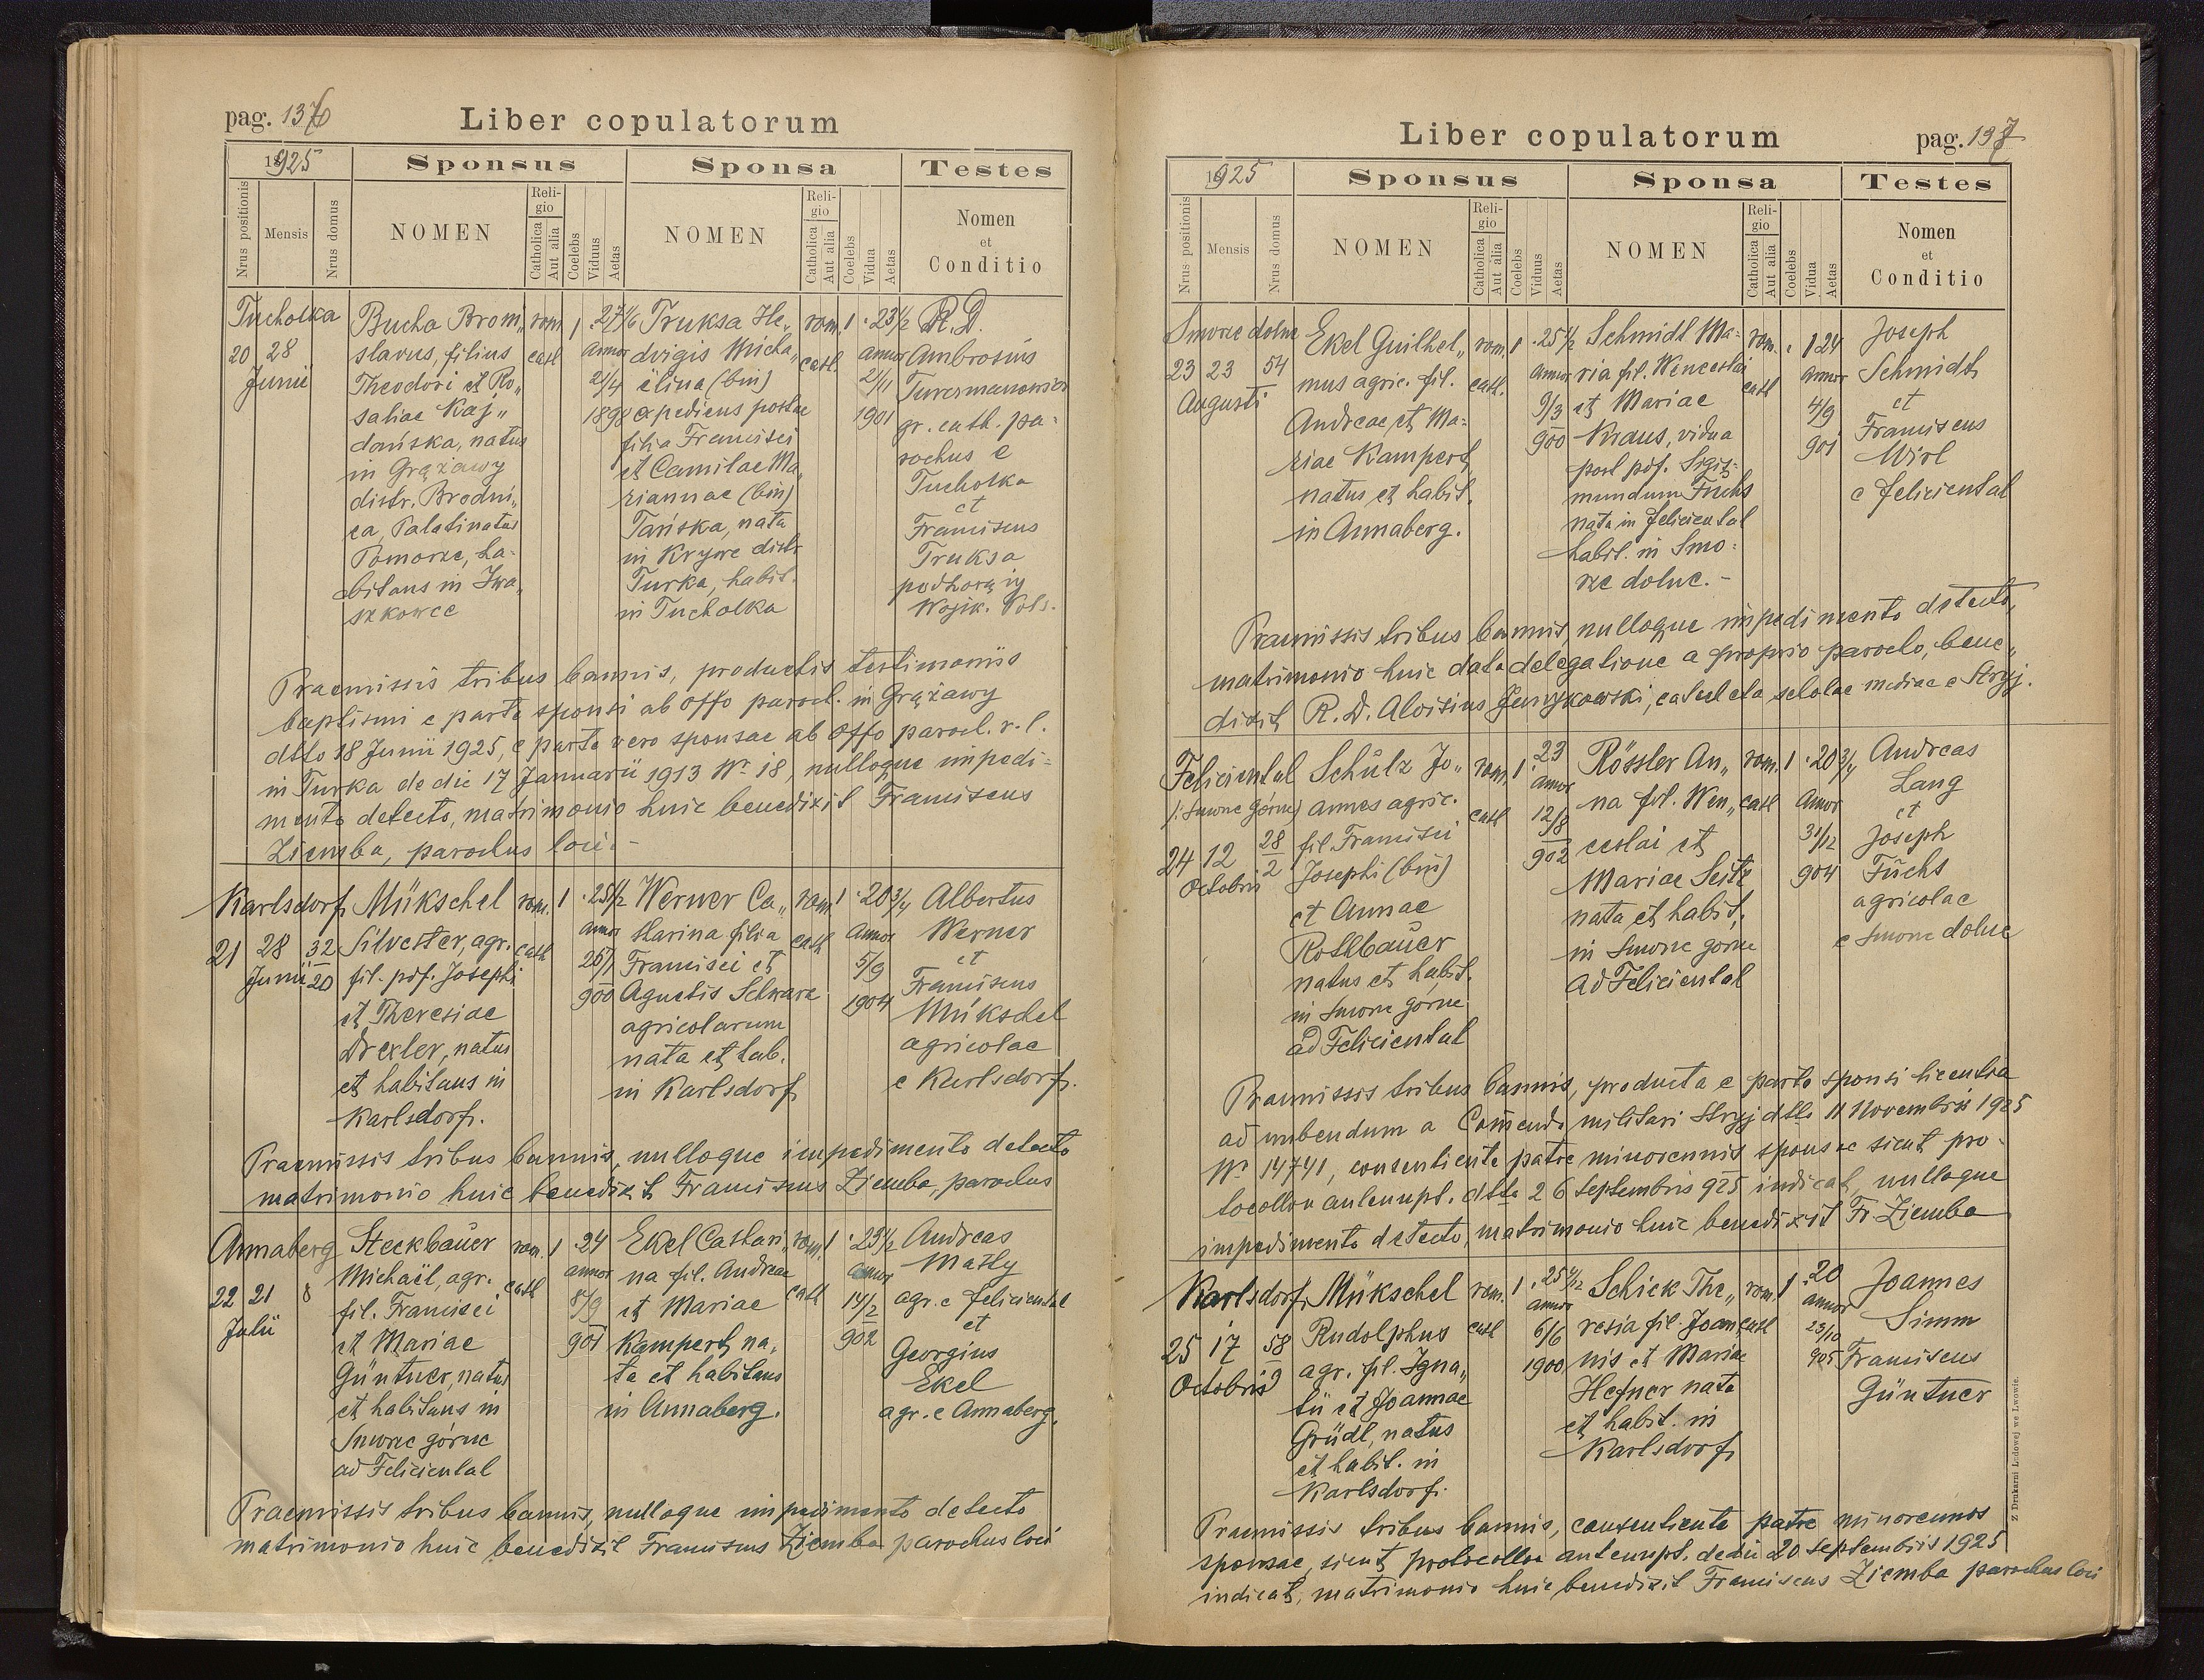 pag. 136
Liber copulatorum
1925
Sponsus
Sponsa
Testes
Nrus positionis
Mensis
Nrus domus
NOMEN
Religio
Catholica
Aut alia
Coelebs
Viduus
Aetas
NOMEN
Religio
Catholica
Aut alia
Coelebs
Vidua
Aetas
Nomen
et
Conditio
Tucholka
20 28
Junii
Bucha Broni„
slavus, filius
Theodori et Ro„
saliae Kaj„
dańska, natus
in Grążawy
distr. Brodni„
ca, Palatinatus
Pomorze, ha-
bitans in Iwa„
szkowce
rom. 1 27 1/6
cath annor
2/4
1898
Truksa He„
dvigis Micha„
ëlina (bin)
expediens postae
filia Francisci
et Camilae Ma„
riannae (bin)
Tańska, nata
in Krywe distr
Turka, habit.
in Tucholka
rom. 1 23 1/2
cath. annor
2/11
1901
R. D.
Ambrosius
Turczmanowicz
gr. cath. pa-
rochus e
Tucholka
et
Franciscus
Truksa
podhorąży
Wojsk. Pols.
Praemissis tribus bannis, productis testimoniis
baptismi e parte sponsi ab offo paroch. in Grążawy
dtto 18 Junii 1925, e parte vero sponsae ab offo paroch. r. l.
in Turka de die 17 Januarii 1913 Nr 18, nulloque impedi-
mento detecto, matrimonio huic benedixit Franciscus
Ziemba, parochus loci.-
Karlsdorf
21 28 32
Junii 20
Mükschel
Silvester, agr.
fil. pdf. Josephi
et Theresiae
Drexler, natus
et habitans in
Karlsdorf.
rom. 1 25 1/2
cath annor
26/1
900
Werner Ca„
tharina filia
Francisci et
Agnetis Schwarz
agricolarum
nata et hab.
in Karlsdorf
rom. 1 20 3/4
cath annor
5/9
1904
Albertus
Werner
et
Franciscus
Mükschel
agricolae
e Karlsdorf.
Praemissis tribus bannis, nulloque impedimento detecto
matrimonio huic benedixit Franciscus Ziemba, parochus
Annaberg
22 21 8
Julii
Steckbauer
Michaël, agr.
fil. Francisci
et Mariae
Güntner, natus
et habitans in
Smorze górne
ad Felicienthal
rom. 1 24
cath annor
8/9
901
Ekel Cathari„
na fil. Andreae
et Mariae
Kampert, na„
ta et habitans
in Annaberg.
rom. 1 23 1/2
cath annor
14/2
902
Andreas
Matly
agr. e Felicienthal
et
Georgius
Ekel
agr. e Annaberg.
Praemissis tribus bannis, nulloque impedimento detecto
matrimonio huic benedixit Franciscus Ziemba parochus loci
Liber copulatorum
pag. 137
1925
Sponsus
Sponsa
Testes
Nrus positionis
Mensis
Nrus domus
NOMEN
Religio
Catholica
Aut alia
Coelebs
Viduus
Aetas
NOMEN
Religio
Catholica
Aut alia
Coelebs
Vidua
Aetas
Nomen
et
Conditio
Smorze dolne
23 23 54
Augusti
Ekel Guilhel„
mus agric. fil.
Andreae et Ma-
riae Kampert
natus et habit.
in Annaberg.
rom. 1 25 1/2
cath. annor
9/3
900
Schmidt Ma-
ria fil. Wenceslai
et Mariae
Knaus, vidua
post pdf. Sigis-
mundum Fuchs
nata in Felicienthal
habit. in Smo-
rze dolne.-
rom. 1 24
cath annor
4/9
901
Joseph
Schmidt
et
Franciscus
Wirl
e Felicienthal
Praemissis tribus bannis, nulloque impedimento detecto,
matrimonio huic data delegatione a proprio parocho, bene„
dixit R. D. Aloisius catecheta scholae mediae e Stryj.
Felicienthal
(: Smorze górne)
24 12 28
Octobris 2
Schülz Jo„
annes agric.
fil. Francisci
Josephi (bin)
et Annae
Rothbauer
natus et habit.
in Smorze górne
ad Felicienthal
rom. 1 23
cath annor
12/8
902
Rössler An„
na fil. Wen„
ceslai et
Mariae Seitz
nata et habit.
in Smorze górne
ad Felicienthal
rom. 1 20 3/4
cath annor
31/12
904
Andreas
Lang
et
Joseph
Füchs
agricolae
e Smorze dolne
Praemissis tribus bannis, producta e parte sponsi licentia
ad nubendum a Commendo militari Stryj dtto 11 Novembris 1925
Nr 14741, consentiente patre minorennis sponsae sicut pro-
tocollon antenupt. dtto 26 Septembris 925 indicat, nulloque
impedimento detecto, matrimonio huic benedixit Fr. Ziemba
Karlsdorf
25 17 58
Octobris 9
Mükschel
Rudolphus
agr. fil. Igna„
tii et Joannae
Grüdl, natus
et habit. in
Karlsdorf.
rom. 1 25 4/12
cath annor
6/6
1900
Schick The„
resia fil. Joan„
nis et Mariae
Hefner nata
et habit. in
Karlsdorf
rom. 1 20
cath annor
23/10
905
Joannes
Simm
Franciscus
Güntner
Praemissis tribus bannis, consentiente patre minorennos
sponsae, sicut protocollon antenupt. de die 20 Septembris 1925
indicat, matrimonio huic benedixit Franciscus Ziemba parochus loci
Z Drukarni Ludowej we Lwowie.